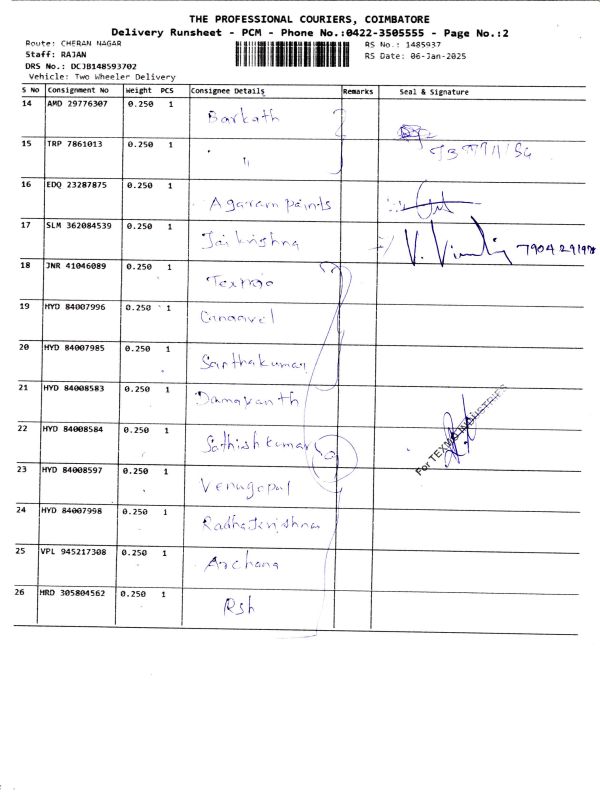 THE PROFESSIONAL COURIERS, COIMBATORE
Delivery Runsheet - PCM - Phone No.:0422-3505555 - Page No.:2
Route: CHERAN NAGAR
RS No.: 1485937
Staff: RAJAN
RS Date: 06-Jan-2025
DRS No.: DCJB148593702
Vehicle: Two Wheeler Delivery
S No Consignment No Weight PCS Consignee Details Remarks Seal & Signature
14 AMD 29776307 0.250 1 Barkath
15 TRP 7861013 0.250 1 "
16 EDQ 23287875 0.250 1 Agaram paints
17 SLM 362084539 0.250 1 Jai krishna
18 JNR 41046089 0.250 1
19 HYD 84007996 0.250 1
20 HYD 84007985 0.250 1 Santhakumar
21 HYD 84008583 0.250 1 Damayanth
22 HYD 84008584 0.250 1 Sathish kumar
For TEXMO INDUSTRIES
23 HYD 84008597 0.250 1 Venugopal
24 HYD 84007998 0.250 1 Radhakrishnan
25 VPL 945217308 0.250 1 Archana
26 HRD 305804562 0.250 1 Rsh